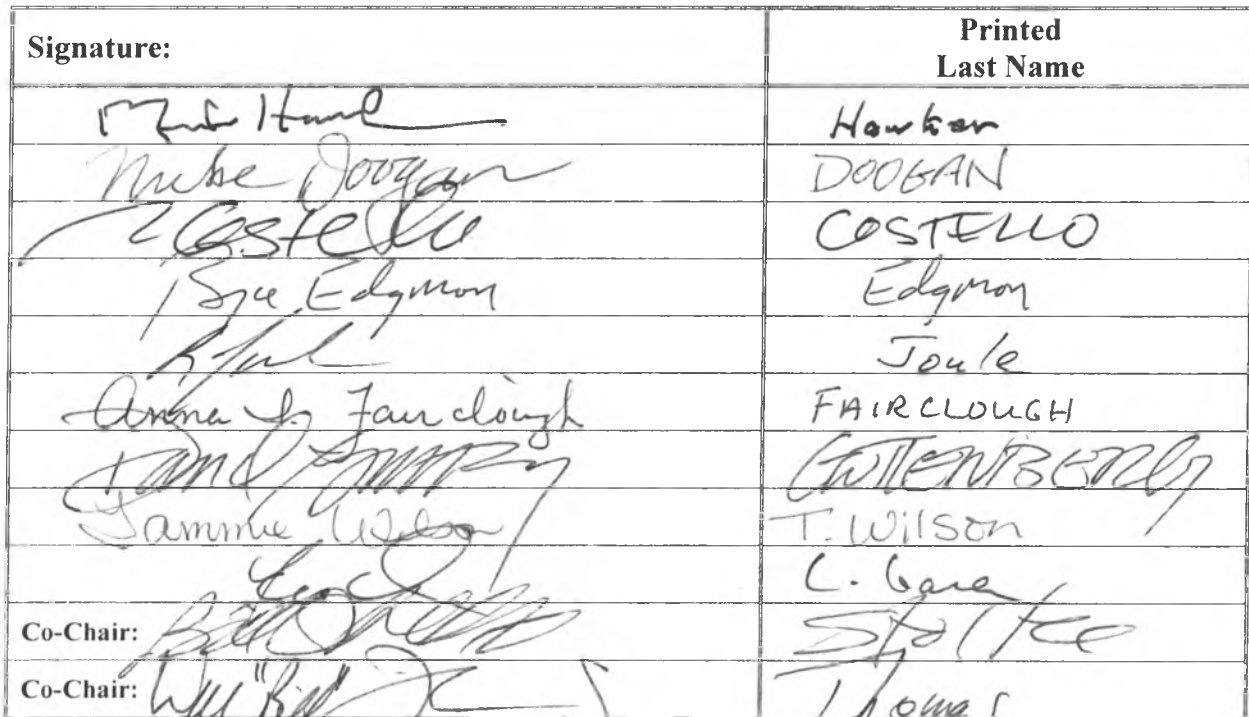 Signature: Printed
Last Name
Hawker
Mike Doogan DOOGAN
Costello COSTELLO
Bryce Edgmon Edgmon
Joule
Anna Fairclough FAIRCLOUGH
GUTTENBERG
Tammie Wilson T. Wilson
L. Gara
Co-Chair: Stoltze
Co-Chair: "Bill" Thomas